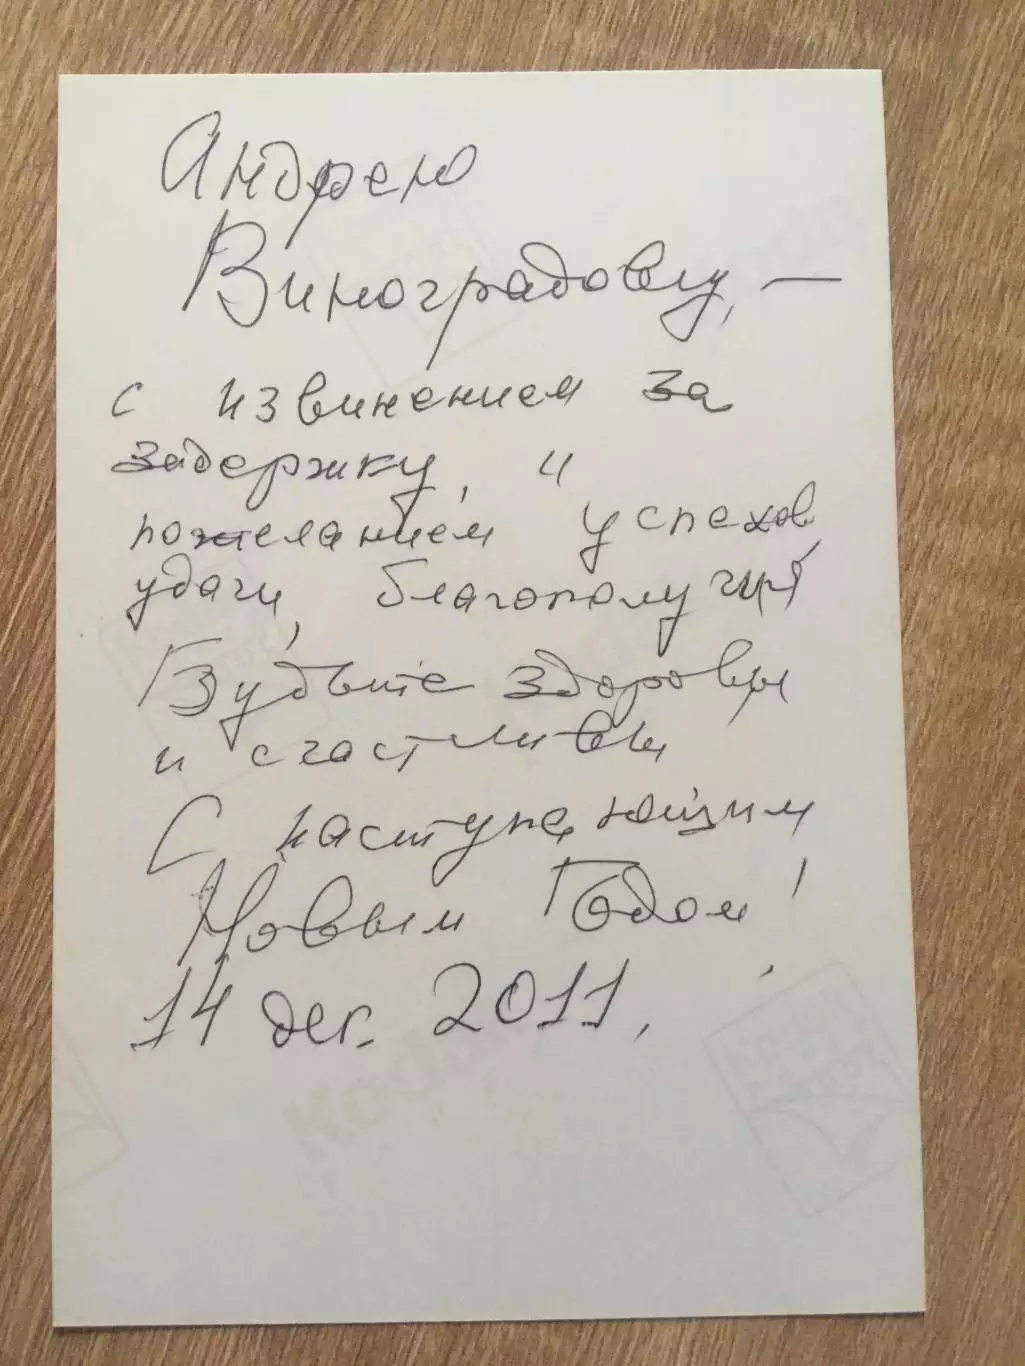 Андрею
Виноградову, —
с извинением за
задержку, и
пожеланием успехов,
удачи, благополучия
Будьте здоровы
и счастливы
С наступающим
Новым Годом!
14 дек. 2011.
Kodak